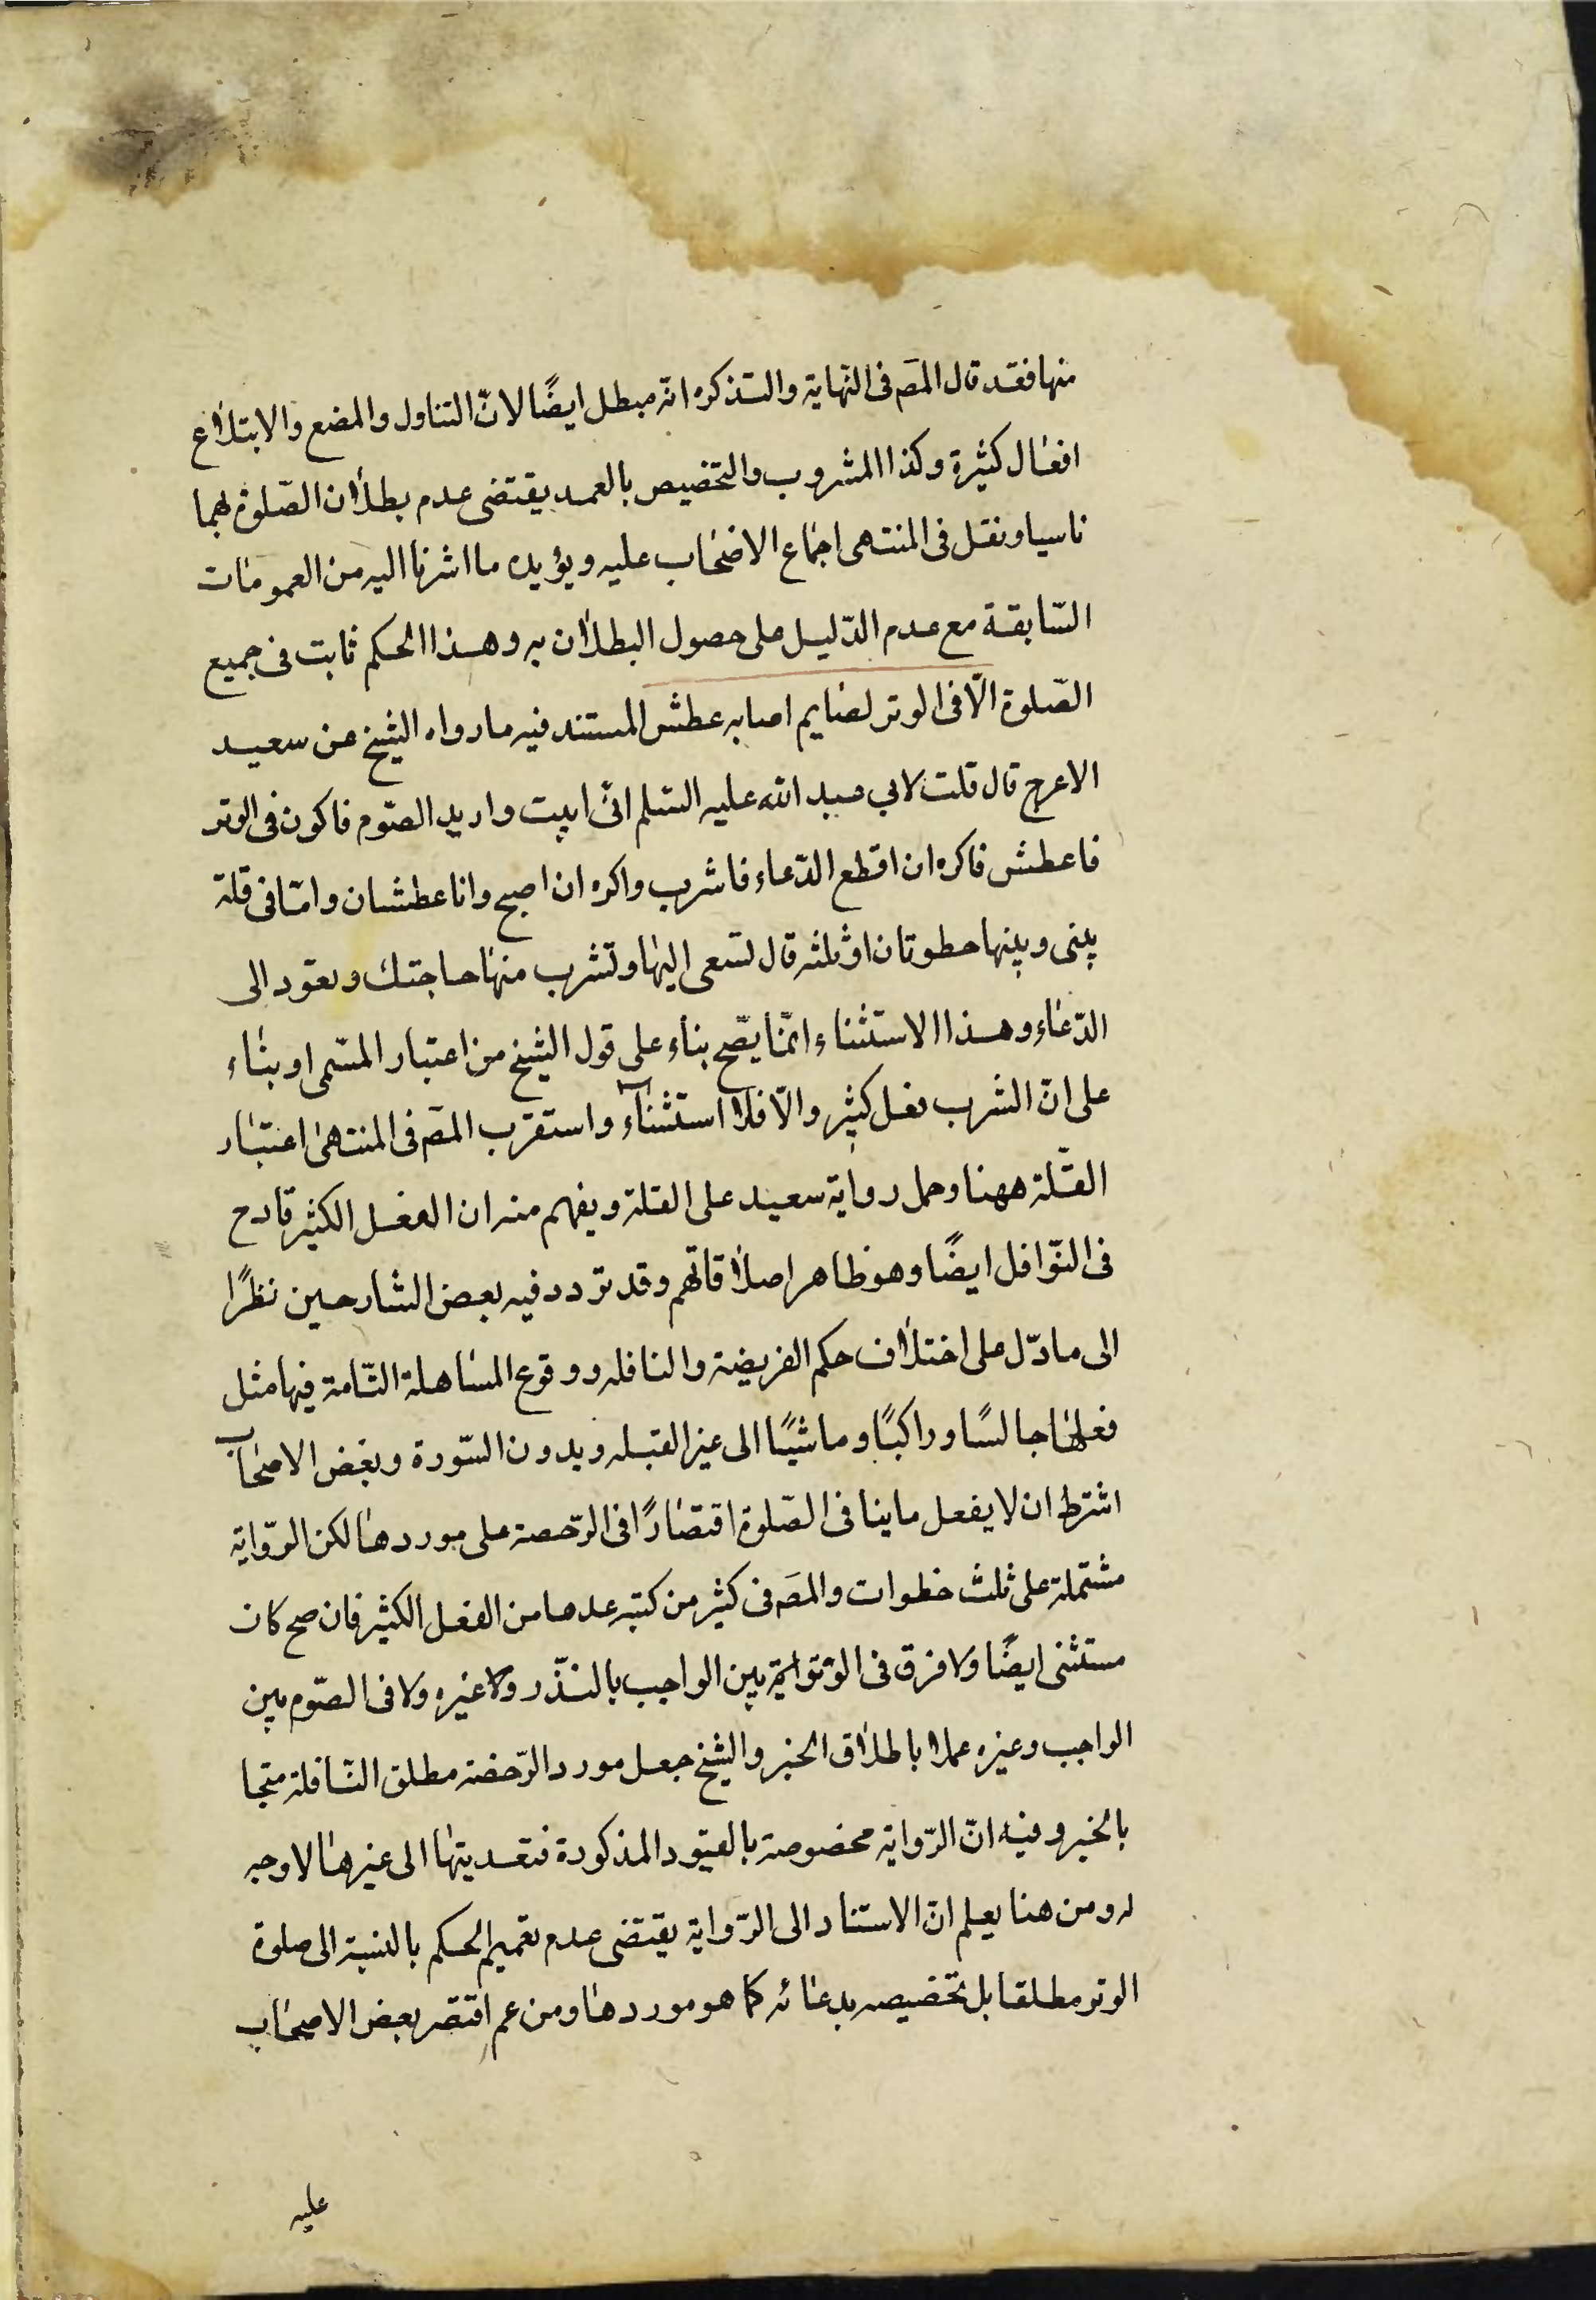 منها فقد قال المصَ فى النّهاية والتذكره انّه مبطل ايضًا لانّ التناول والمضع والابتلاع
افعال كثيرة وكذا المشروب والتخصيص بالعمد يقتضى عدم بطلان الصّلوة بهما
ناسيا ونقل فى المنتهى اجماع الاصحاب عليه ويؤيده ما اشرنا اليه من العمومات
السّابقة مع عدم الدّليل على حصول البطلان به وهذا الحكم ثابت فى جميع
الصّلوة الّا فى الوتر لصايم اصابه عطش المستند فيه ما رواه الشيخ عن سعيد
الاعرج قال قلت لابي عبد الله عليه السّلم انّى ابيت واريد الصّوم فاكون فى الوتر
فاعطش فاكره ان اقطع الدّعاء فاشرب واكره ان اصبح وانا عطشان وامّا فى قلة
بينى وبينها خطوتان او ثلثه قال تسعى اليها وتشرب منها حاجتك وتعود الى
الدّعاء وهذا الاستثناء انّما يصّح بناء على قول الشيخ من اعتبار المسّمى او بناء
على انّ الشرب فعل كثير والّا فلا استثناء واستقرب المصَ فى المنتهى اعتبار
القّلة ههنا وحمل رواية سعيد على القلة ويفهم منه ان الفعل الكثير قادح
فى النّوافل ايضًا وهو ظاهر اطلاقاتهم وقد تردد فيه بعض الشارحين نظرًا
الى ما دّل على اختلاف حكم الفريضة والنافله ووقوع المساهلة التّامة فيها مثل
فعلها جالسًا وراكبًا وماشيًا الى غير القبله وبدون السّورة وبعض الاصحاب
اشترط ان لا يفعل ما ينافى الصّلوة اقتصارًا فى الرّخصة على موردها لكن الرّواية
مشتملة على ثلث خطوات والمصَ فى كثير من كتبه عدها من الفعل الكثير فان صح كان
مستثنى ايضًا ولا فرق فى الوتر بين الواجب بالنذّر ولا غيره ولا فى الصّوم بين
الواجب وغيره عملا باطلاق الخبر والشيخ جعل مورد الرّخصة مطلق النّافلة محتجا
بالخبر وفيه انّ الرّواية مخصوصة بالقيود المذكورة فتعديتها الى غيرها لا وجه
له ومن هنا يعلم انّ الاستناد الى الرّواية يقتضى عدم تعميم الحكم بالنسبة الى صلوة
الوتر مطلقا بل تخصيصه بدعائه كما هو موردها ومن ثم اقتصر بعض الاصحاب
عليه